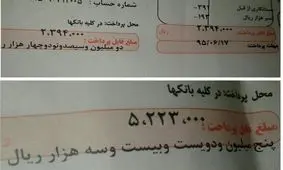 شماره حساب :
محل پرداخت: در کلیه بانکها
۲.۳۹۴.۰۰۰
مبلغ قابل پرداخت :
دو میلیون وسیصدونودوچهار هزار ریال
بدهکاری از قبل
-۳۹۱
کسر هزار ریال
-۱۹۲
۲.۳۹۴.۰۰۰
ریال
۹۵/۰۶/۱۷
مهلت پرداخت
محل پرداخت: در کلیه بانکها
۵،۲۲۳،۰۰۰
مبلغ قابل پرداخت :
پنج میلیون ودویست وبیست وسه هزار ریال